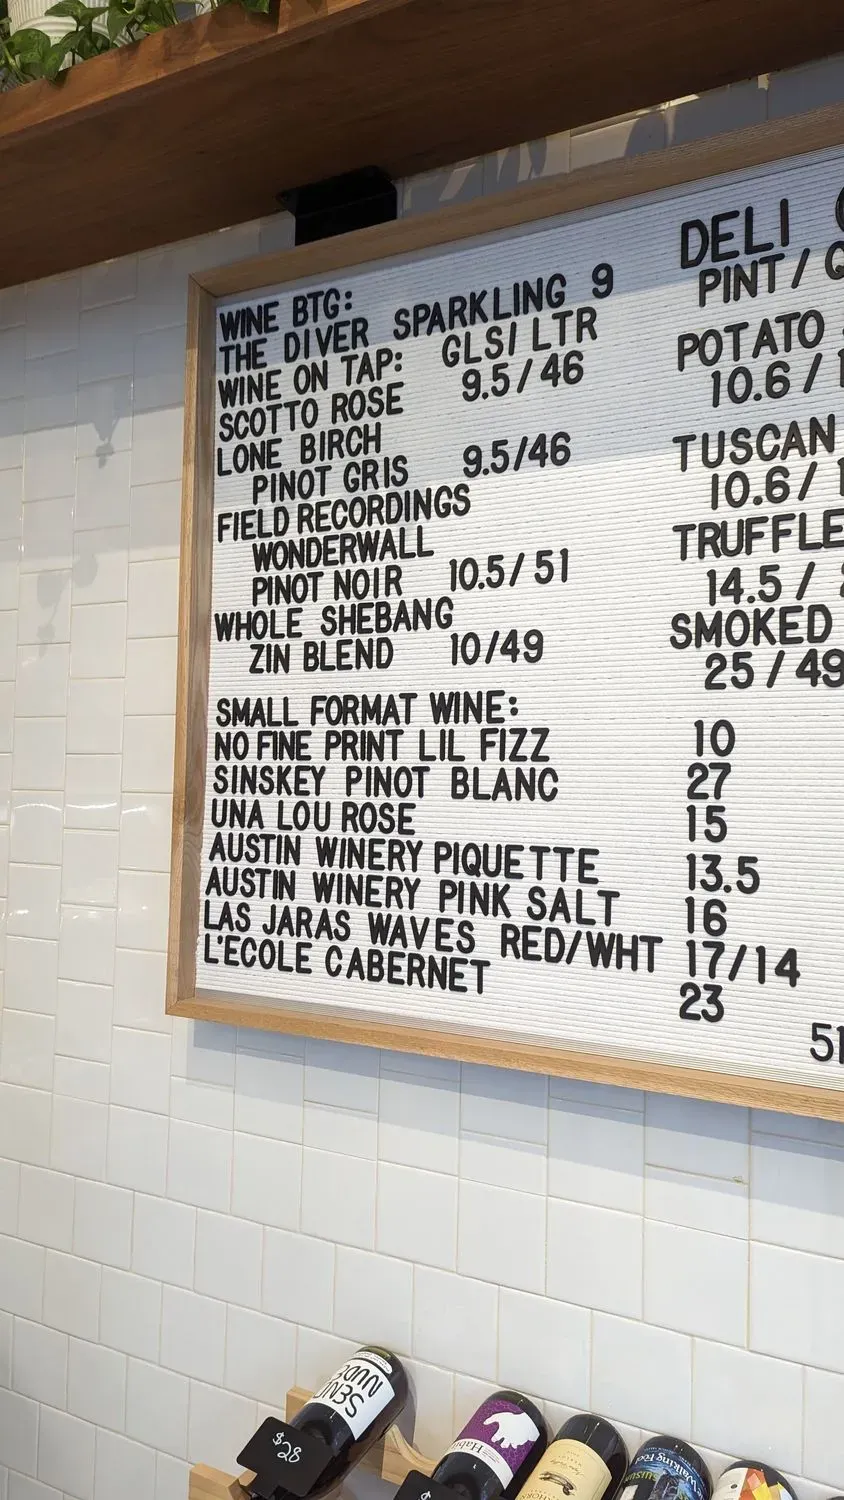 WINE BTG:
THE DIVER SPARKLING 9
WINE ON TAP: GLS/LTR
SCOTTO ROSE 9.5/46
LONE BIRCH
PINOT GRIS 9.5/46
FIELD RECORDINGS
WONDERWALL
PINOT NOIR 10.5/51
WHOLE SHEBANG
ZIN BLEND 10/49
SMALL FORMAT WINE:
NO FINE PRINT LIL FIZZ 10
SINSKEY PINOT BLANC 27
UNA LOU ROSE 15
AUSTIN WINERY PIQUETTE 13.5
AUSTIN WINERY PINK SALT 16
LAS JARAS WAVES RED/WHT 17/14
L'ECOLE CABERNET 23
DELI
PINT/
POTATO
10.6/
TUSCAN
10.6/
TRUFFLE
14.5/
SMOKED
25/49
SEND
NUDE
$28
Walking Fool